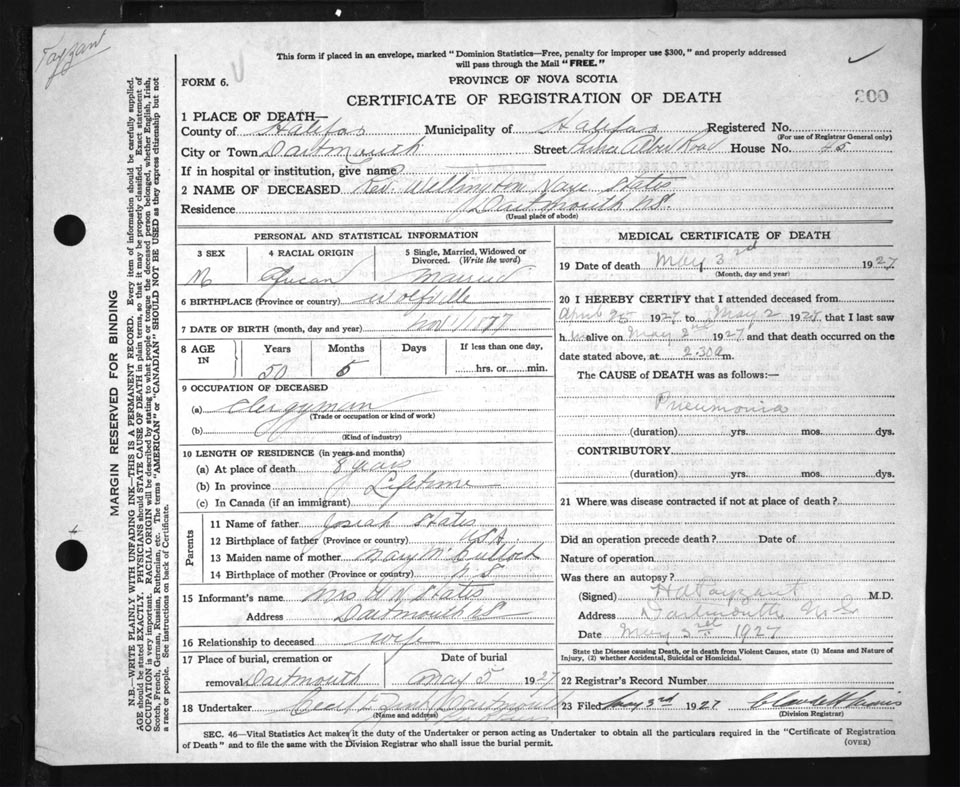 Tayzant
This form if placed in an envelope, marked "Dominion Statistics—Free, penalty for improper use $300," and properly addressed
will pass through the Mail "FREE."
FORM 6.
PROVINCE OF NOVA SCOTIA
CERTIFICATE OF REGISTRATION OF DEATH
200
1 PLACE OF DEATH—
County of Halifax Municipality of Halifax Registered No.
(For use of Registrar General only)
City or Town Dartmouth Street Road House No. 45
If in hospital or institution, give name
2 NAME OF DECEASED Rev. Wellington States
Residence Dartmouth N.S.
(Usual place of abode)
PERSONAL AND STATISTICAL INFORMATION
3 SEX M
4 RACIAL ORIGIN African
5 Single, Married, Widowed or Divorced. (Write the word) Married
6 BIRTHPLACE (Province or country) Wolfville
7 DATE OF BIRTH (month, day and year) Nov 1/1877
8 AGE IN
Years Months Days If less than one day,
50 5 hrs. or min.
9 OCCUPATION OF DECEASED
(a) Clergyman
(Trade or occupation or kind of work)
(b)
(Kind of industry)
10 LENGTH OF RESIDENCE (in years and months)
(a) At place of death 8 years
(b) In province Lifetime
(c) In Canada (if an immigrant)
Parents
11 Name of father Josiah States
12 Birthplace of father (Province or country) U.S.A.
13 Maiden name of mother Mary McCulloch
14 Birthplace of mother (Province or country) N.S.
15 Informant's name Mrs W N States
Address Dartmouth N.S.
16 Relationship to deceased wife
17 Place of burial, cremation or removal Dartmouth Date of burial May 5 1927
18 Undertaker Dartmouth
(Name and address)
MEDICAL CERTIFICATE OF DEATH
19 Date of death May 3rd 1927
(Month, day and year)
20 I HEREBY CERTIFY that I attended deceased from
April 1927 to May 2 1927 that I last saw
h im alive on May 2nd 1927 and that death occurred on the
date stated above, at 2.30 a m.
The CAUSE of DEATH was as follows:—
Pneumonia
(duration) yrs. mos. dys.
CONTRIBUTORY
(duration) yrs. mos. dys.
21 Where was disease contracted if not at place of death?
Did an operation precede death? Date of
Nature of operation
Was there an autopsy?
(Signed) H A Tayzant M.D.
Address Dartmouth N.S.
Date May 3rd 1927
State the Disease causing Death, or in death from Violent Causes, state (1) Means and Nature of
Injury, (2) whether Accidental, Suicidal or Homicidal.
22 Registrar's Record Number
23 Filed May 3rd 1927
(Division Registrar)
SEC. 46—Vital Statistics Act makes it the duty of the Undertaker or person acting as Undertaker to obtain all the particulars required in the "Certificate of Registration
of Death" and to file the same with the Division Registrar who shall issue the burial permit. (OVER)
MARGIN RESERVED FOR BINDING
N.B.—WRITE PLAINLY WITH UNFADING INK—THIS IS A PERMANENT RECORD. Every item of information should be carefully supplied.
AGE should be stated EXACTLY. PHYSICIANS should STATE CAUSE OF DEATH in plain terms, so that it may be properly classified. Exact statement of
OCCUPATION is very important. RACIAL ORIGIN will be described by stating to what people or tongue the deceased person belonged, whether English, Irish,
Scotch, French, German, Russian, Ruthenian, etc. The terms "AMERICAN" or "CANADIAN" SHOULD NOT BE USED as they express citizenship but not
a race or people. See instructions on back of Certificate.